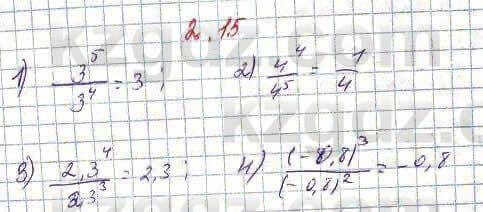 2.15
1) 3^5/3^4 = 3; 2) 4^4/4^5 = 1/4
3) 2,3^4/2,3^3 = 2,3; 4) (-0,8)^3/(-0,8)^2 = -0,8